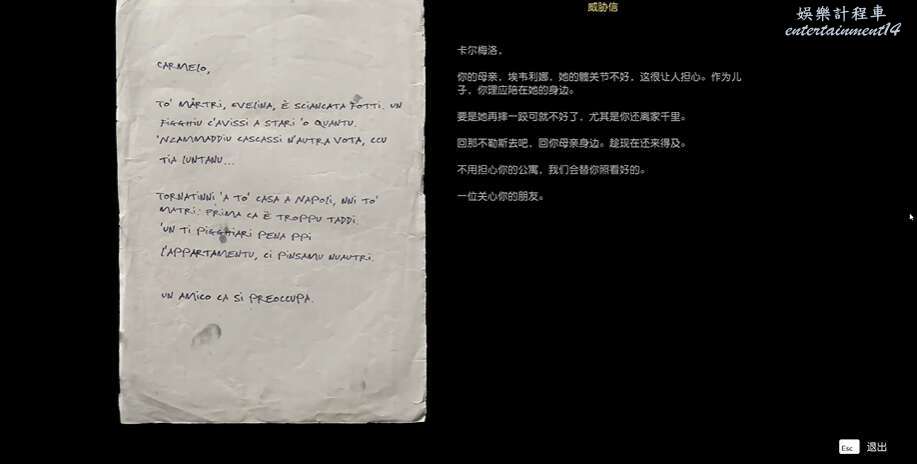 威胁信
娛樂計程車
entertainment14
CARMELO,
TO' MÀRTRI, EVELINA, È SCIANCATA FOTTI. UN
FIGGHIU L'AVISSI A STARI 'O QUANTU.
'NZAMMADDIU CASCASSI N'AUTRA VOTA, CCU
TIA LUNTANU...
TORNATINNI 'A TO' CASA A NAPOLI, NNI TO'
MATRI. PRIMA CA È TROPPU TADDI.
'UN TI PIGGHIARI PENA PPI
L'APPARTAMENTU, CI PINSAMU NUAUTRI.
UN AMICO CA SI PREOCCUPA.
卡尔梅洛，
你的母亲，埃韦利娜，她的髋关节不好，这很让人担心。作为儿
子，你理应陪在她的身边。
要是她再摔一跤可就不好了，尤其是你还离家千里。
回那不勒斯去吧，回你母亲身边。趁现在还来得及。
不用担心你的公寓，我们会替你照看好的。
一位关心你的朋友。
Esc 退出